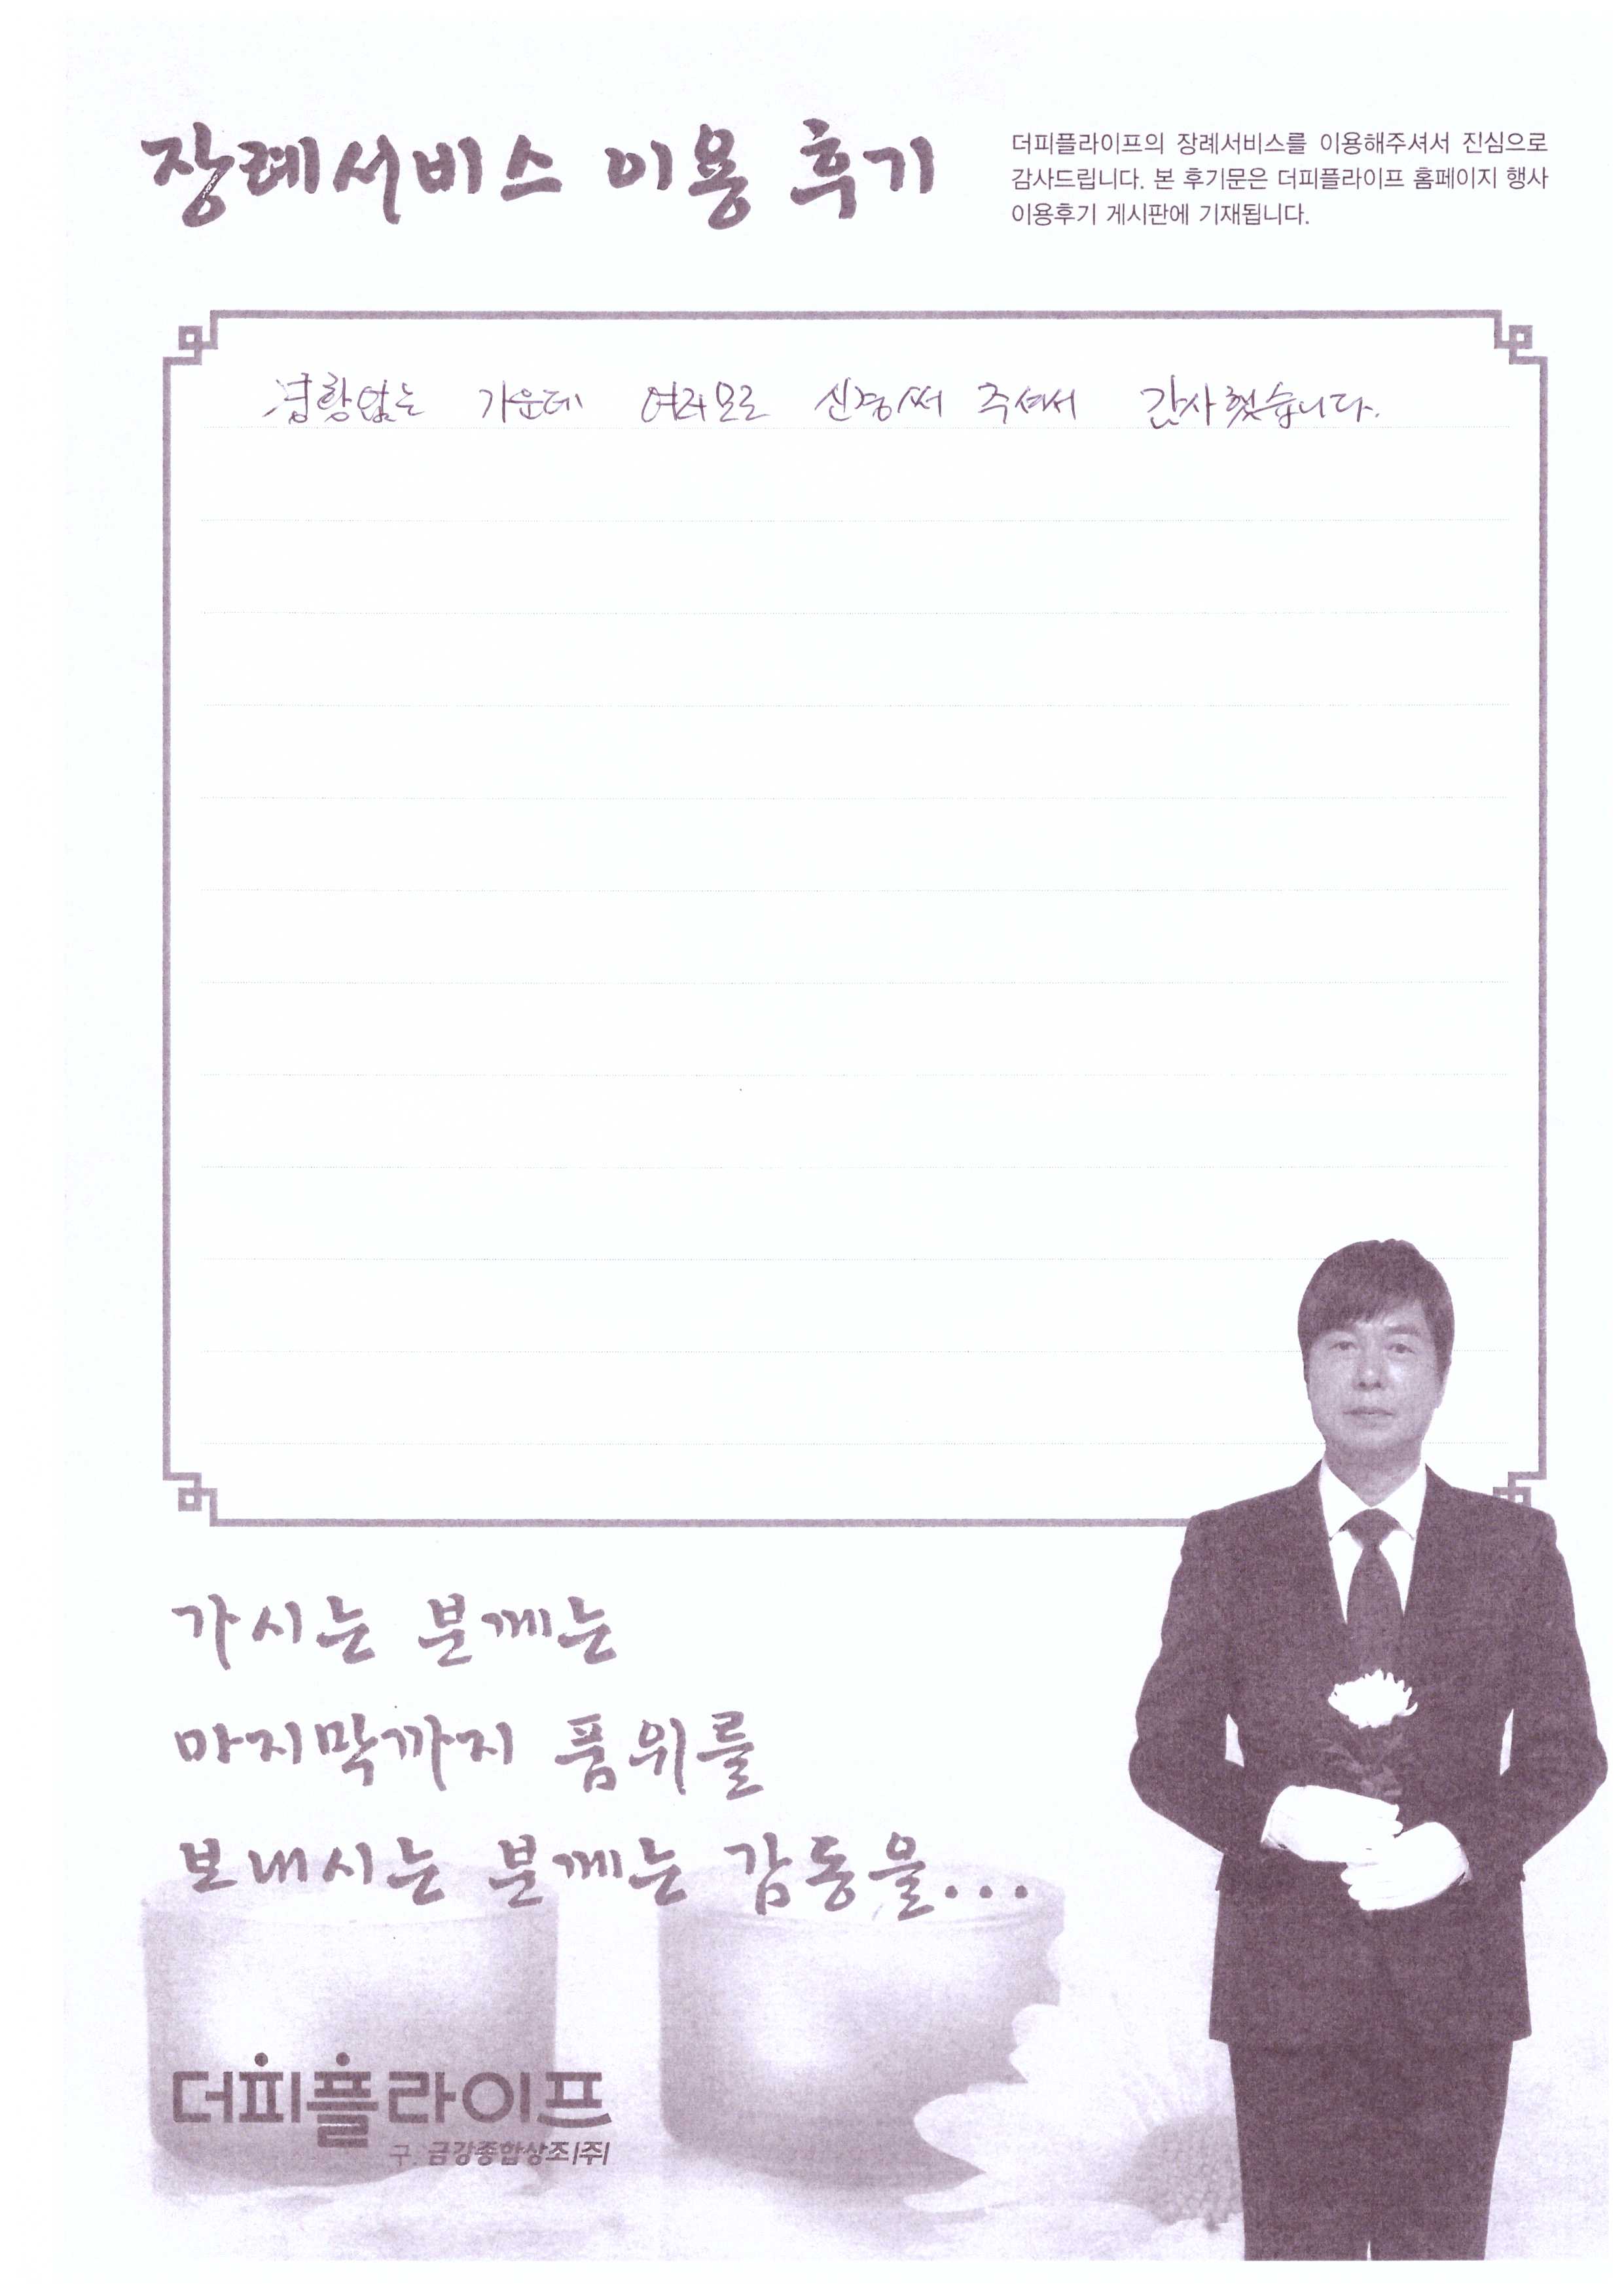 장례서비스 이용 후기
더피플라이프의 장례서비스를 이용해주셔서 진심으로
감사드립니다. 본 후기문은 더피플라이프 홈페이지 행사
이용후기 게시판에 기재됩니다.
경황없는 가운데 여러모로 신경써 주셔서 감사했습니다.
가시는 분께는
마지막까지 품위를
보내시는 분께는 감동을...
더피플라이프
구. 금강종합상조(주)